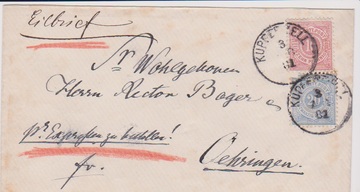 Eilbrief
Sr Wohlgeboren
Herrn Rector Bager
pr. Expressen zu bestellen!
fr. Oehringen.
KUPFERZELL
3
81
KUPFERZELL
3
81